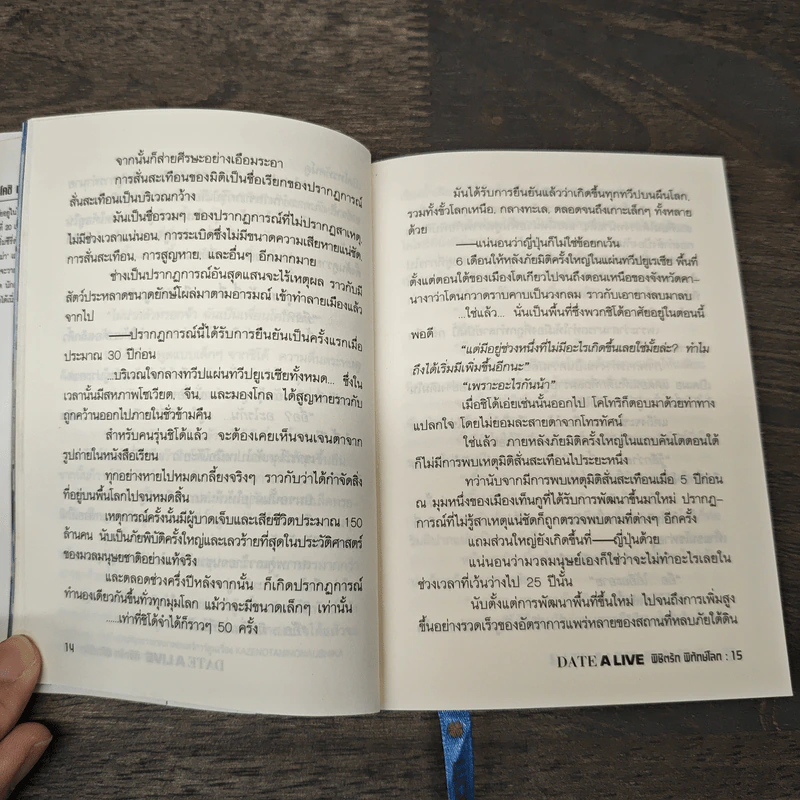 จากนั้นก็ส่ายศีรษะอย่างเอือมระอา
การสั่นสะเทือนของมิติเป็นชื่อเรียกของปรากฏการณ์
สั่นสะเทือนเป็นบริเวณกว้าง
มันเป็นชื่อรวมๆ ของปรากฏการณ์ที่ไม่ปรากฏสาเหตุ
ไม่มีช่วงเวลาแน่นอน, การระเบิดซึ่งไม่มีขนาดความเสียหายแน่ชัด,
การสั่นสะเทือน, การสูญหาย, และอื่นๆ อีกมากมาย
ช่างเป็นปรากฏการณ์อันสุดแสนจะไร้เหตุผล ราวกับมี
สัตว์ประหลาดขนาดยักษ์โผล่มาตามอารมณ์ เข้าทำลายเมืองแล้ว
จากไป
——ปรากฏการณ์นี้ได้รับการยืนยันเป็นครั้งแรกเมื่อ
ประมาณ 30 ปีก่อน
...บริเวณใจกลางทวีปแผ่นทวีปยูเรเซียทั้งหมด... ซึ่งใน
เวลานั้นมีสหภาพโซเวียด, จีน, และมองโกล ได้สูญหายราวกับ
ถูกคว้านออกไปภายในชั่วข้ามคืน
สำหรับคนรุ่นชิโด้แล้ว จะต้องเคยเห็นจนเจนตาจาก
รูปถ่ายในหนังสือเรียน
ทุกอย่างหายไปหมดเกลี้ยงจริงๆ ราวกับว่าได้กำจัดสิ่ง
ที่อยู่บนพื้นโลกไปจนหมดสิ้น
เหตุการณ์ครั้งนั้นมีผู้บาดเจ็บและเสียชีวิตประมาณ 150
ล้านคน นับเป็นภัยพิบัติครั้งใหญ่และเลวร้ายที่สุดในประวัติศาสตร์
ของมวลมนุษยชาติอย่างแท้จริง
และตลอดช่วงครึ่งปีหลังจากนั้น ก็เกิดปรากฏการณ์
ทำนองเดียวกันขึ้นทั่วทุกมุมโลก แม้ว่าจะมีขนาดเล็กๆ เท่านั้น
....เท่าที่ชิโด้จำได้ก็ราวๆ 50 ครั้ง
14
มันได้รับการยืนยันแล้วว่าเกิดขึ้นทุกทวีปบนผืนโลก,
รวมทั้งขั้วโลกเหนือ, กลางทะเล, ตลอดจนถึงเกาะเล็กๆ ทั้งหลาย
ด้วย
——แน่นอนว่าญี่ปุ่นก็ไม่ใช่ข้อยกเว้น
6 เดือนให้หลังภัยมิติครั้งใหญ่ในแผ่นทวีปยูเรเซีย พื้นที่
ตั้งแต่ตอนใต้ของเมืองโตเกียวไปจนถึงตอนเหนือของจังหวัดคา-
นางาว่าโดนกวาดราบคาบเป็นวงกลม ราวกับเอายางลบมาลบ
...ใช่แล้ว... นั่นเป็นพื้นที่ซึ่งพวกชิโด้อาศัยอยู่ในตอนนี้
พอดี
"แต่มีอยู่ช่วงหนึ่งที่ไม่มีอะไรเกิดขึ้นเลยใช่มั้ยล่ะ? ทำไม
ถึงได้เริ่มมีเพิ่มขึ้นอีกนะ"
"เพราะอะไรกันน้า"
เมื่อชิโด้เอ่ยเช่นนั้นออกไป โคโทริก็ตอบมาด้วยท่าทาง
แปลกใจ โดยไม่ยอมละสายตาจากโทรทัศน์
ใช่แล้ว ภายหลังภัยมิติครั้งใหญ่ในแถบคันโตตอนใต้
ก็ไม่มีการพบเหตุมิติสั่นสะเทือนไประยะหนึ่ง
ทว่านับจากมีการพบเหตุมิติสั่นสะเทือนเมื่อ 5 ปีก่อน
ณ มุมหนึ่งของเมืองเท็นกูที่ได้รับการพัฒนาขึ้นมาใหม่ ปรากฏ-
การณ์ที่ไม่รู้สาเหตุแน่ชัดก็ถูกตรวจพบตามที่ต่างๆ อีกครั้ง
แถมส่วนใหญ่ยังเกิดขึ้นที่——ญี่ปุ่นด้วย
แน่นอนว่ามวลมนุษย์เองก็ใช่ว่าจะไม่ทำอะไรเลยใน
ช่วงเวลาที่เว้นว่างไป 25 ปีนั้น
นับตั้งแต่การพัฒนาพื้นที่ขึ้นใหม่ ไปจนถึงการเพิ่มสูง
ขึ้นอย่างรวดเร็วของอัตราการแพร่หลายของสถานที่หลบภัยใต้ดิน
DATE A LIVE พิชิตรัก พิทักษ์โลก : 15